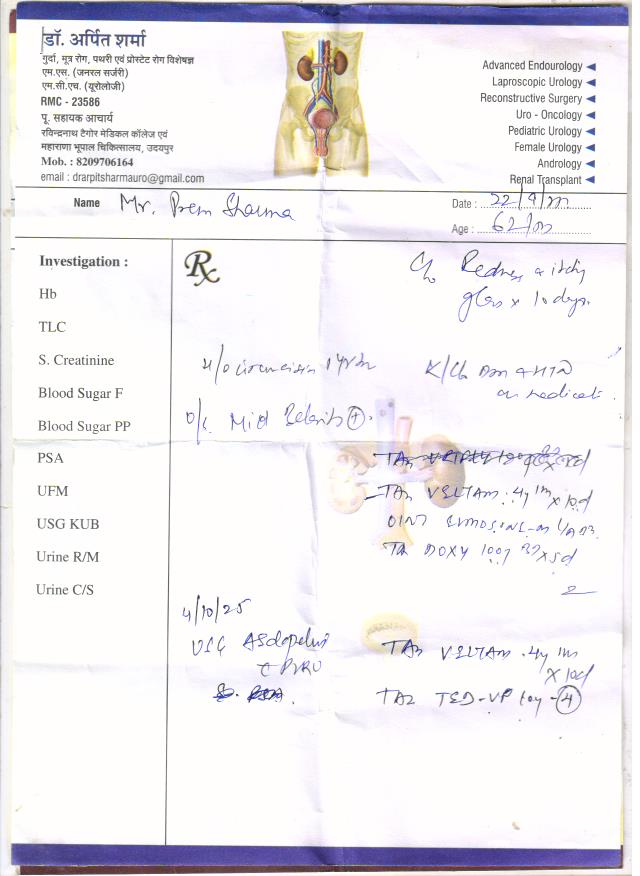 डॉ. अर्पित शर्मा
गुर्दा, मूत्र रोग, पथरी एवं प्रोस्टेट रोग विशेषज्ञ
एम.एस. (जनरल सर्जरी)
एम.सी.एच. (यूरोलोजी)
RMC - 23586
पू. सहायक आचार्य
रविन्द्रनाथ टैगोर मेडिकल कॉलेज एवं
महाराणा भूपाल चिकित्सालय, उदयपुर
Mob. : 8209706164
email : drarpitsharmauro@gmail.com
Advanced Endourology
Laproscopic Urology
Reconstructive Surgery
Uro - Oncology
Pediatric Urology
Female Urology
Andrology
Renal Transplant
Name Mr. Prem Sharma
Date : 22/9/
Age : 62/m
Investigation :
Hb
TLC
S. Creatinine
Blood Sugar F
Blood Sugar PP
PSA
UFM
USG KUB
Urine R/M
Urine C/S
Rx
C/o Redness & itchy
glans x 10 days.
H/o circumcision
K/C/o DM & HTN
on medicat.
O/E Mild Balanitis +.
TAB VELTAM .4mg x 10d
OINT
TAB DOXY 100mg x 5d
4/10/25
USG
C PVRU
TAB VELTAM .4mg
x 10d
TAB